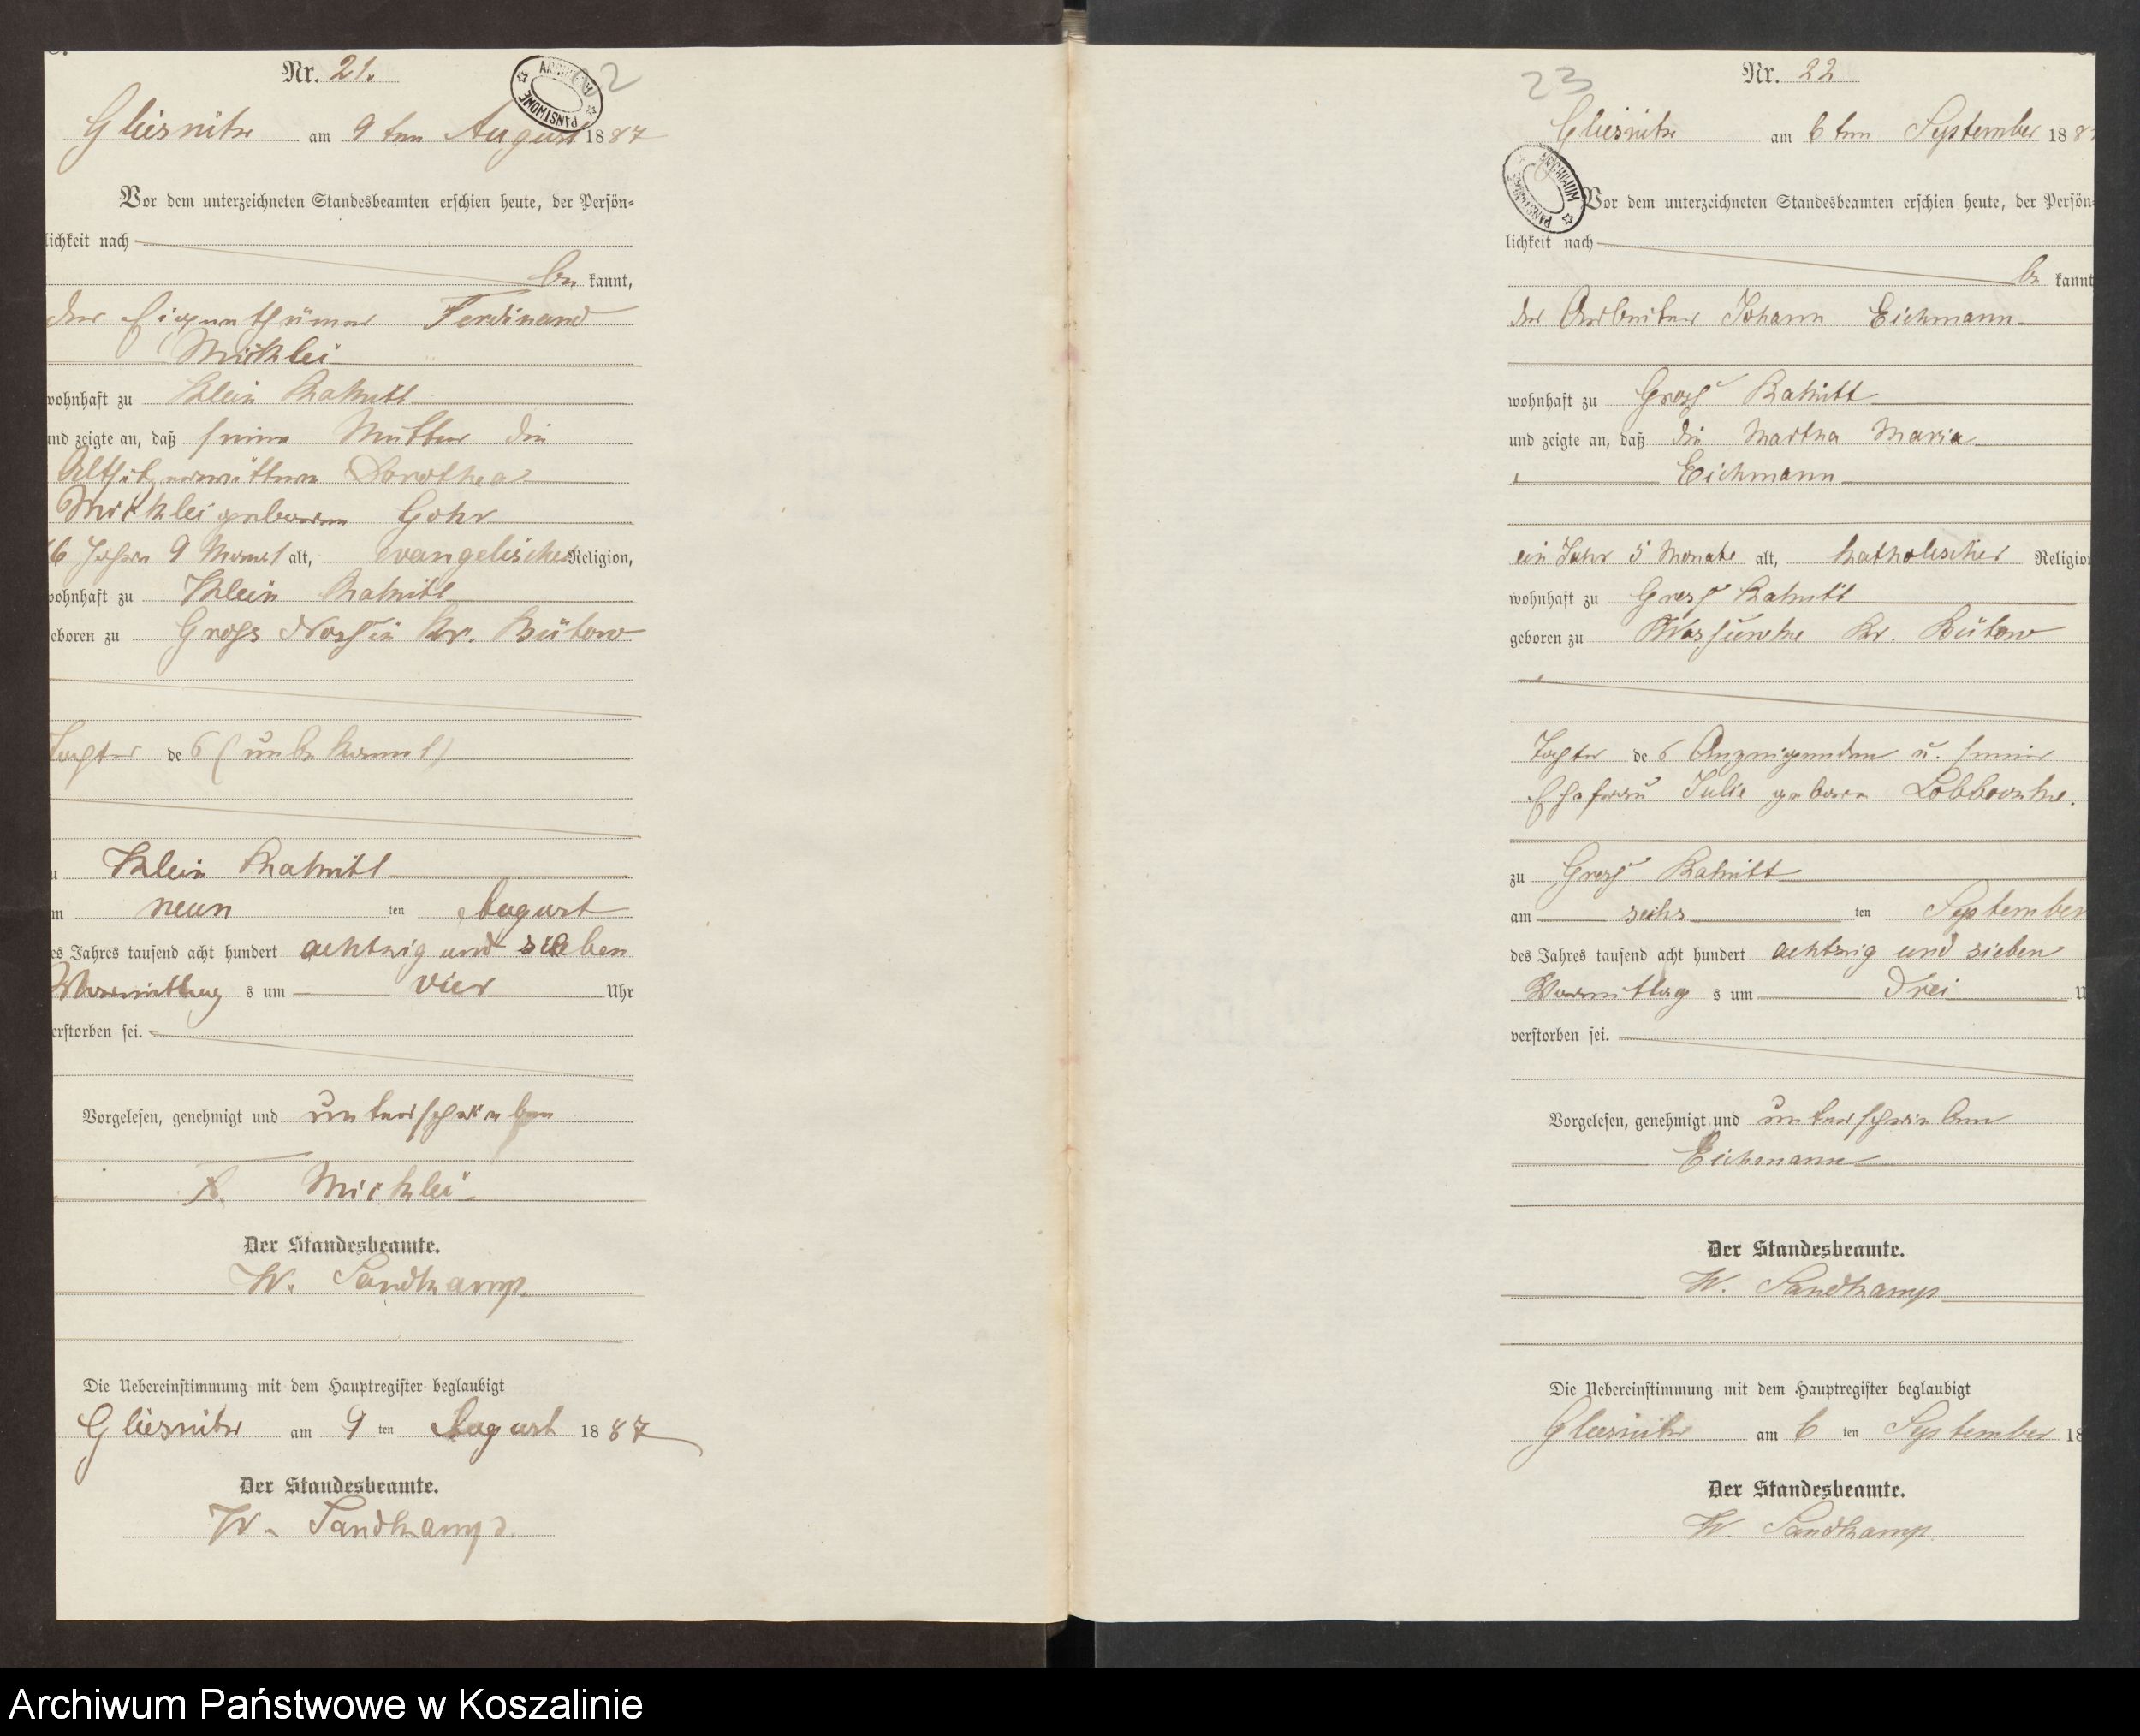 Nr. 21.
2
Gliesnitz am 9ten August 1887
Vor dem unterzeichneten Standesbeamten erschien heute, der Persön-
lichkeit nach
be kannt,
der Eigenthümer Ferdinand
Micklei
wohnhaft zu Klein Rakitt
und zeigte an, daß seine Mutter die
Altsitzerwittwe Dorothea
Micklei geborene Gohr
6 Jahre 9 Monat alt, evangelischer Religion,
wohnhaft zu Klein Rakitt
eboren zu Gross Nossin Kr. Bütow
Tochter des (unbekannt)
u Klein Rakitt
m neun ten August
es Jahres tausend acht hundert achtzig und sieben
Vormittag s um vier Uhr
erstorben sei.
Vorgelesen, genehmigt und unterschrieben
F. Micklei
Der Standesbeamte.
W. Sandkamp.
Die Uebereinstimmung mit dem Hauptregister beglaubigt
Gliesnitz am 9 ten August 1887
Der Standesbeamte.
W. Sandkamp.
23
Nr. 22
Gliesnitz am 6ten September 188
ARCHIWUM PAŃSTWOWE
Vor dem unterzeichneten Standesbeamten erschien heute, der Persön-
lichkeit nach
be kannt
der Arbeiter Johann Eichmann
wohnhaft zu Gross Rakitt
und zeigte an, daß die Martha Maria
Eichmann
ein Jahr 5 Monate alt, katholischer Religio
wohnhaft zu Gross Rakitt
geboren zu Kr. Bütow
Tochter des Anzeigenden u. seiner
Ehefrau Julie geborene
zu Gross Rakitt
am sechs ten September
des Jahres tausend acht hundert achtzig und sieben
Vormittag s um drei U
verstorben sei.
Vorgelesen, genehmigt und unterschrieben
Eichmann
Der Standesbeamte.
W. Sandkamp
Die Uebereinstimmung mit dem Hauptregister beglaubigt
Gliesnitz am 6 ten September 18
Der Standesbeamte.
W. Sandkamp
Archiwum Państwowe w Koszalinie